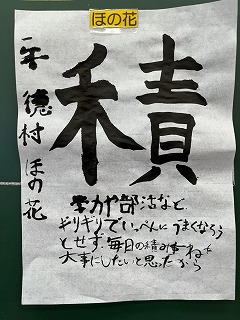 ほの花
積
一年 徳村ほの花
学力や部活など、
ギリギリでいっぺんにうまくなろう
とせず、毎日の積み重ねを
大事にしたいと思ったから